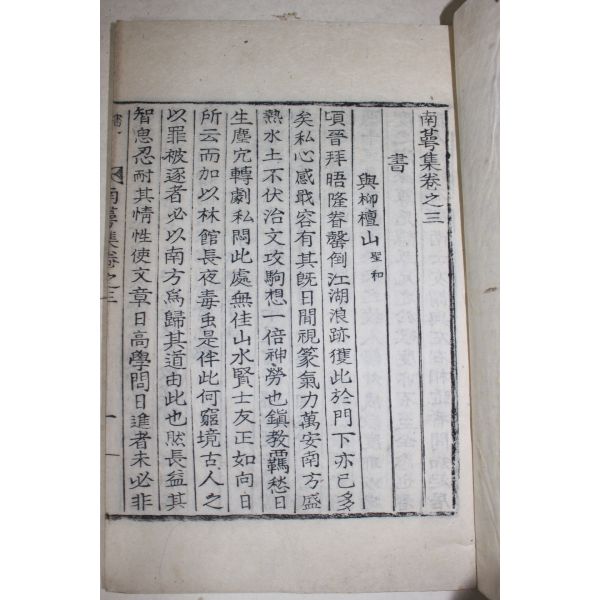 南蕚集卷之三
書
與柳檀山 聖和
頃晉拜晤隆眷罄倒江湖浪跡獲此於門下亦已多
矣私心感戢容有其旣日間視篆氣力萬安南方盛
熱水土不伏治文攻駒想一倍神勞也鎭敎羈愁日
生塵宂轉劇私悶此處無佳山水賢士友正如向日
所云而加以林館長夜毒虫是伴此何窮境古人之
以罪被逐者必以南方爲歸其道由此也然長益其
智思忍耐其情性使文章日高學問日進者未必非
書
南蕚集卷之三
一